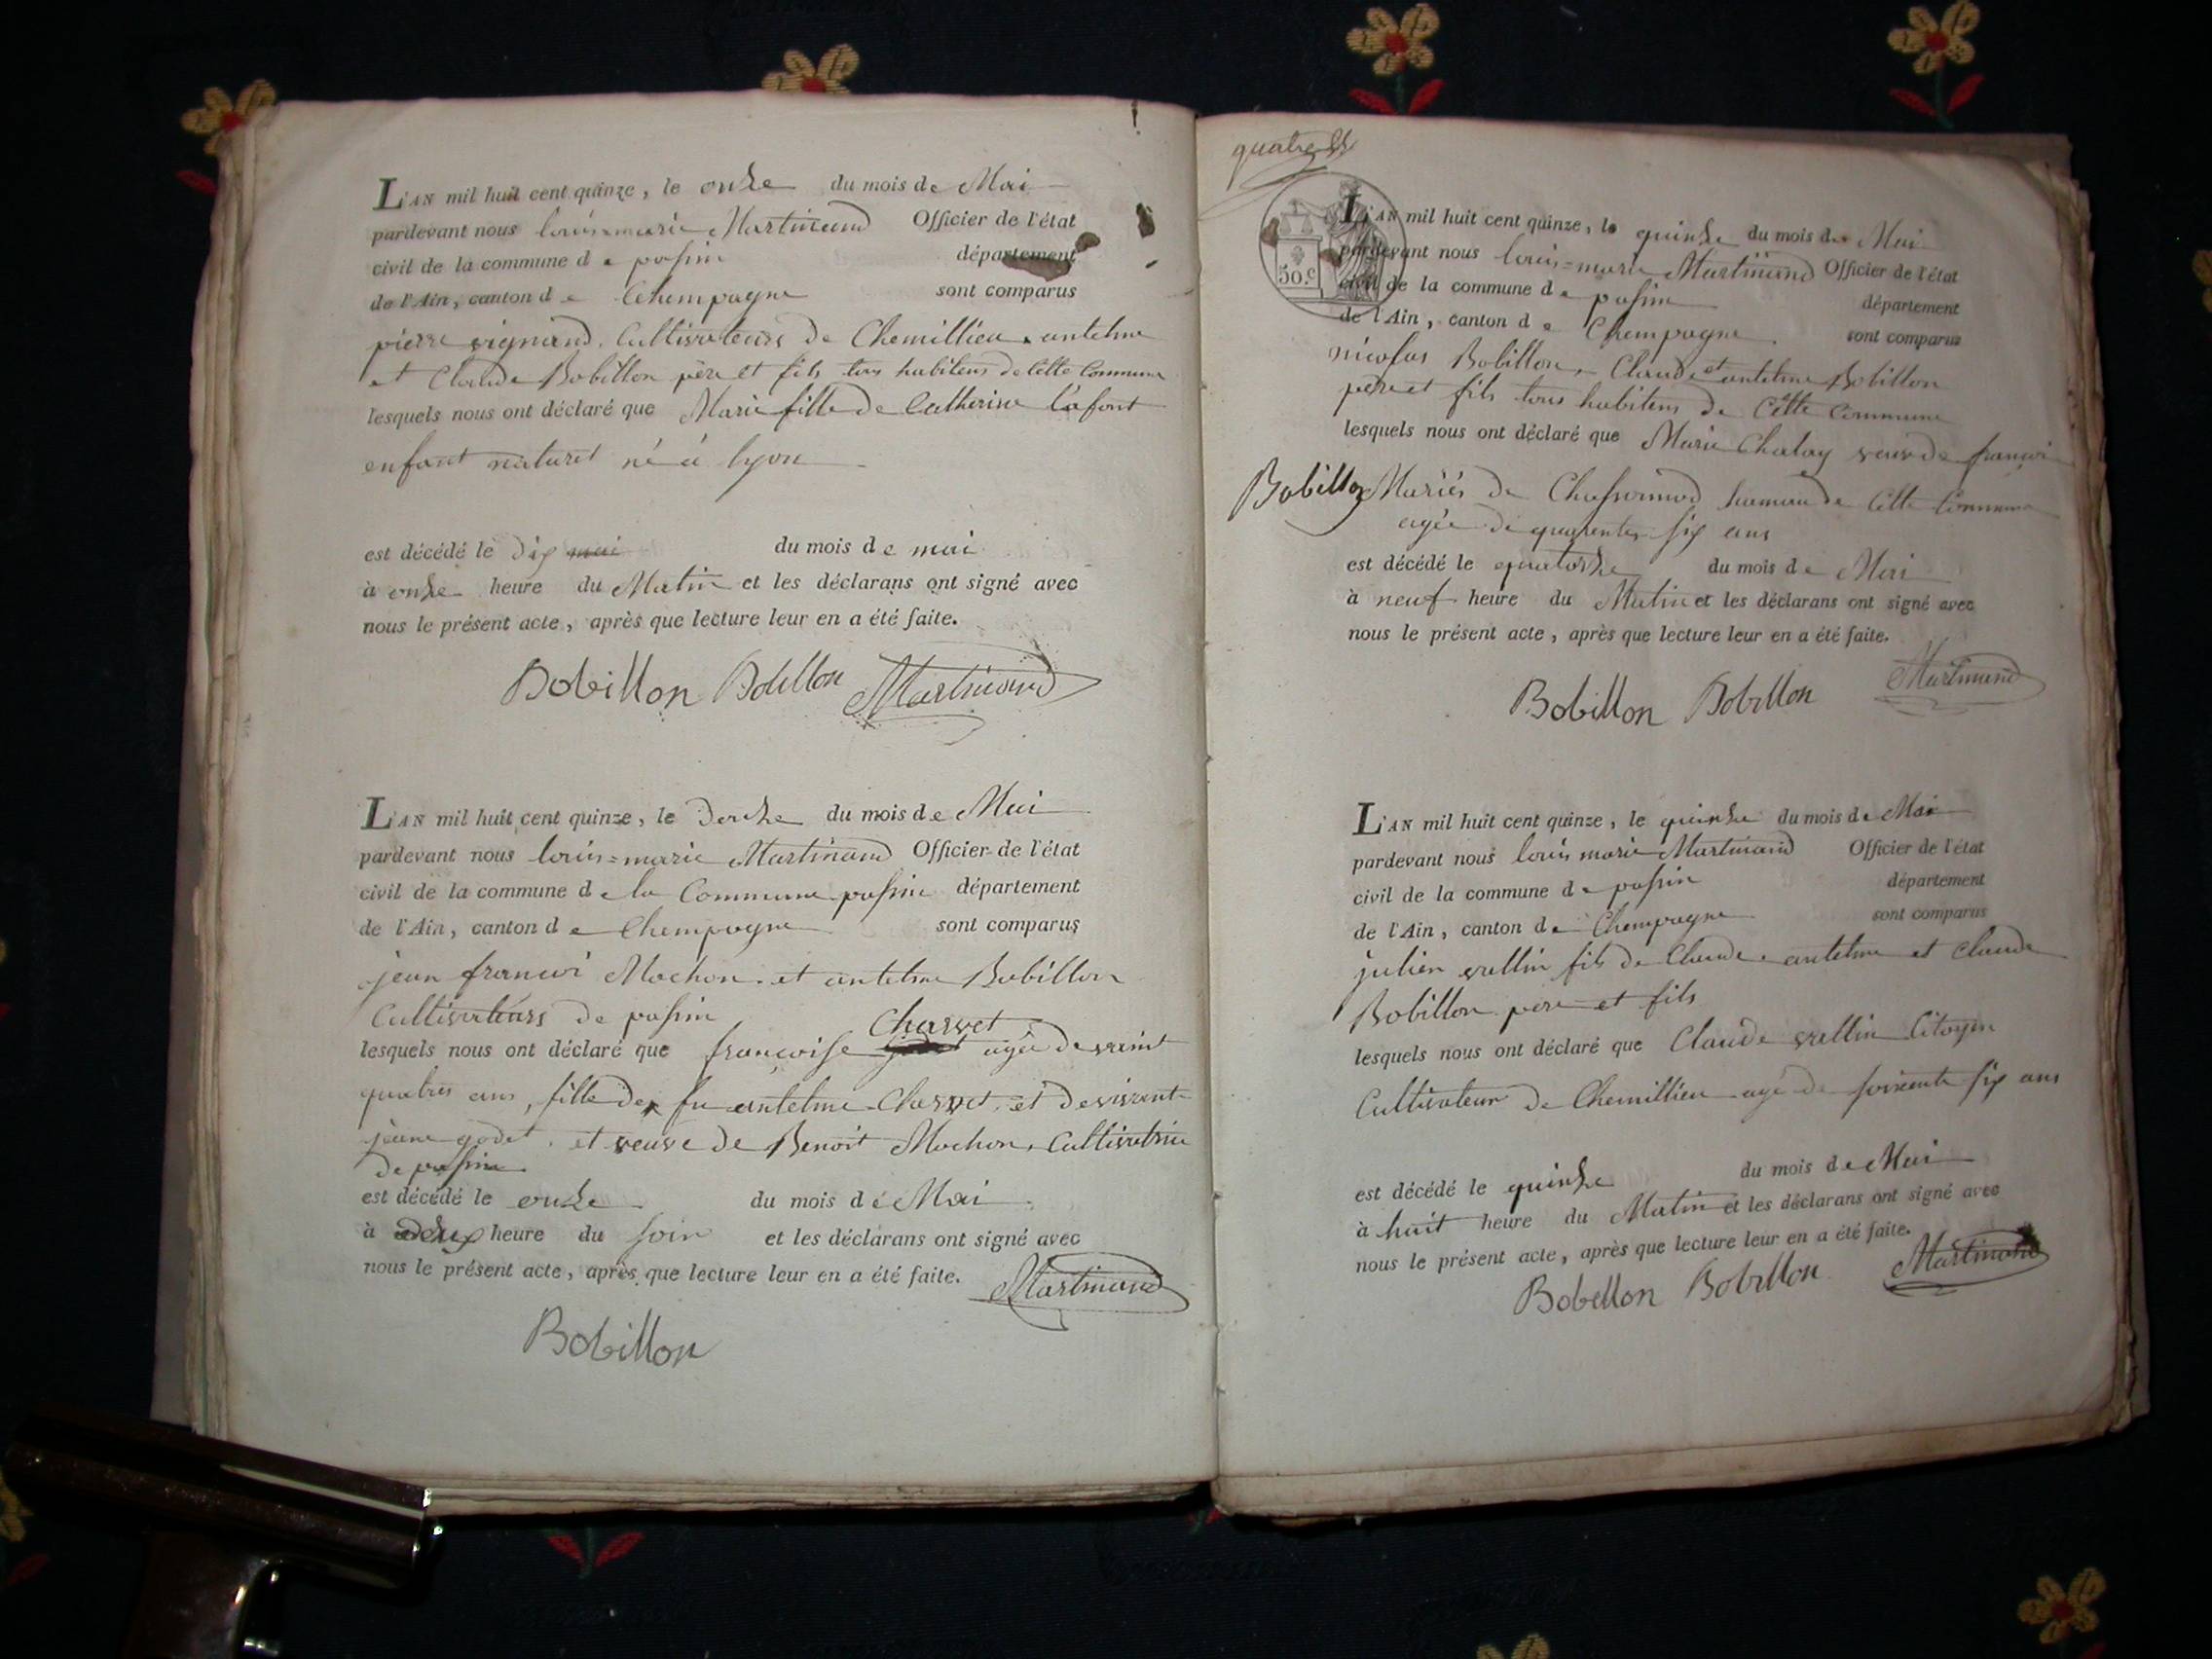 L'AN mil huit cent quinze, le onze du mois de Mai
pardevant nous louis=marie Martinand Officier de l'état
civil de la commune de passin département
de l'Ain, canton de Chempagne sont comparus
pierre vignand, Cultivateurs de Chemillieu, antelme
et Claude Bobillon père et fils tous habitens de Cette Commune
lesquels nous ont déclaré que Marie fille de Catherine Lafont
enfant naturel né à lyon
est décédé le dix mai du mois de mai
à onze heure du Matin et les déclarans ont signé avec
nous le présent acte, après que lecture leur en a été faite.
Bobillon Bobillon Martinand
L'AN mil huit cent quinze, le douze du mois de Mai
pardevant nous louis=marie Martinand Officier de l'état
civil de la commune de la Commune passin département
de l'Ain, canton de Chempagne sont comparus
jean françoi Mochon et antelme Bobillon
Cultivateurs de passin
Charvet
lesquels nous ont déclaré que françoise agée de vaint
quatres ans, fille de fu antelme Charvet, et de vivant
jeane godet, et veuve de Benoit Mochon, Cultivatrice
de passin
est décédé le onze du mois de Mai
à deux heure du soir et les déclarans ont signé avec
nous le présent acte, après que lecture leur en a été faite.
Martinand
Bobillon
quatre
50.c
L'AN mil huit cent quinze, le quinze du mois de Mai
pardevant nous louis=marie Martinand Officier de l'état
civil de la commune de passin département
de l'Ain, canton de Chempagne sont comparus
nicolas Bobillon, Claude et antelme Bobillon
père et fils tous habitens de Cette Commune
lesquels nous ont déclaré que Marie Chalay veuve de françoi
Bobillon Mariés de hamau de Cette Commune
agée de quarente six ans
est décédé le quatorze du mois de Mai
à neuf heure du Matin et les déclarans ont signé avec
nous le présent acte, après que lecture leur en a été faite.
Bobillon Bobillon Martinand
L'AN mil huit cent quinze, le quinze du mois de Mai
pardevant nous louis marie Martinand Officier de l'état
civil de la commune de passin département
de l'Ain, canton de Chempagne sont comparus
julien vullin fils de Claude, antelme et Claude
Bobillon père et fils
lesquels nous ont déclaré que Claude vullin Citoyen
Cultivateur de Chemillieu agé de soixente six ans
est décédé le quinze du mois de Mai
à huit heure du Matin et les déclarans ont signé avec
nous le présent acte, après que lecture leur en a été faite.
Bobillon Bobillon Martinand